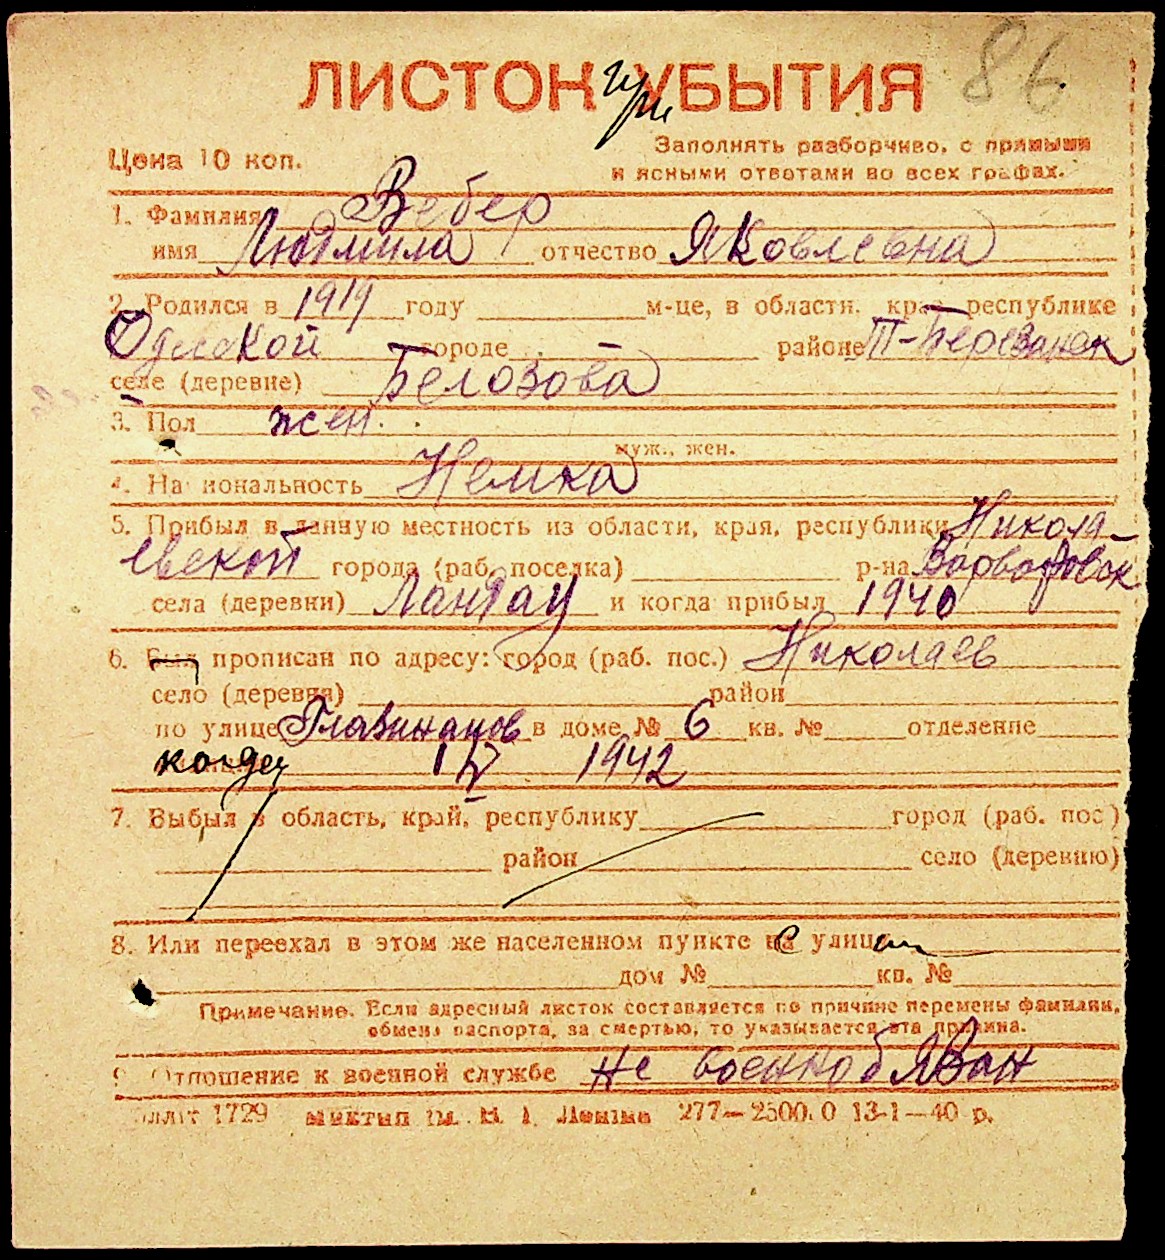 86
ЛИСТОК УБЫТИЯ
при
Цена 10 коп.
Заполнять разборчиво, с прямыми
и ясными ответами во всех графах.
1. Фамилия Вебер
имя Людмила отчество Яковлевна
2. Родился в 1919 году м-це, в области, крае, республике
Одесской городе районе Т-Березанск
селе (деревне) Белозова
3. Пол жен.
муж., жен.
4. Национальность Немка
5. Прибыл в данную местность из области, края, республики Никола-
евской города (раб. поселка) р-на Варваровск
села (деревни) Ландау и когда прибыл 1940
6. Был прописан по адресу: город (раб. пос.) Николаев
село (деревня) район
по улице в доме № 6 кв. № отделение
когда 1 IV 1942
7. Выбыл в область, край, республику город (раб. пос)
район село (деревню)
8. Или переехал в этом же населенном пункте с улицы
дом № кв. №
Примечание. Если адресный листок составляется по причине перемены фамилии,
обмена паспорта, за смертью, то указывается эта причина.
9. Отношение к военной службе не военнообязан
1729 им. 277—25000 13-1—40 р.